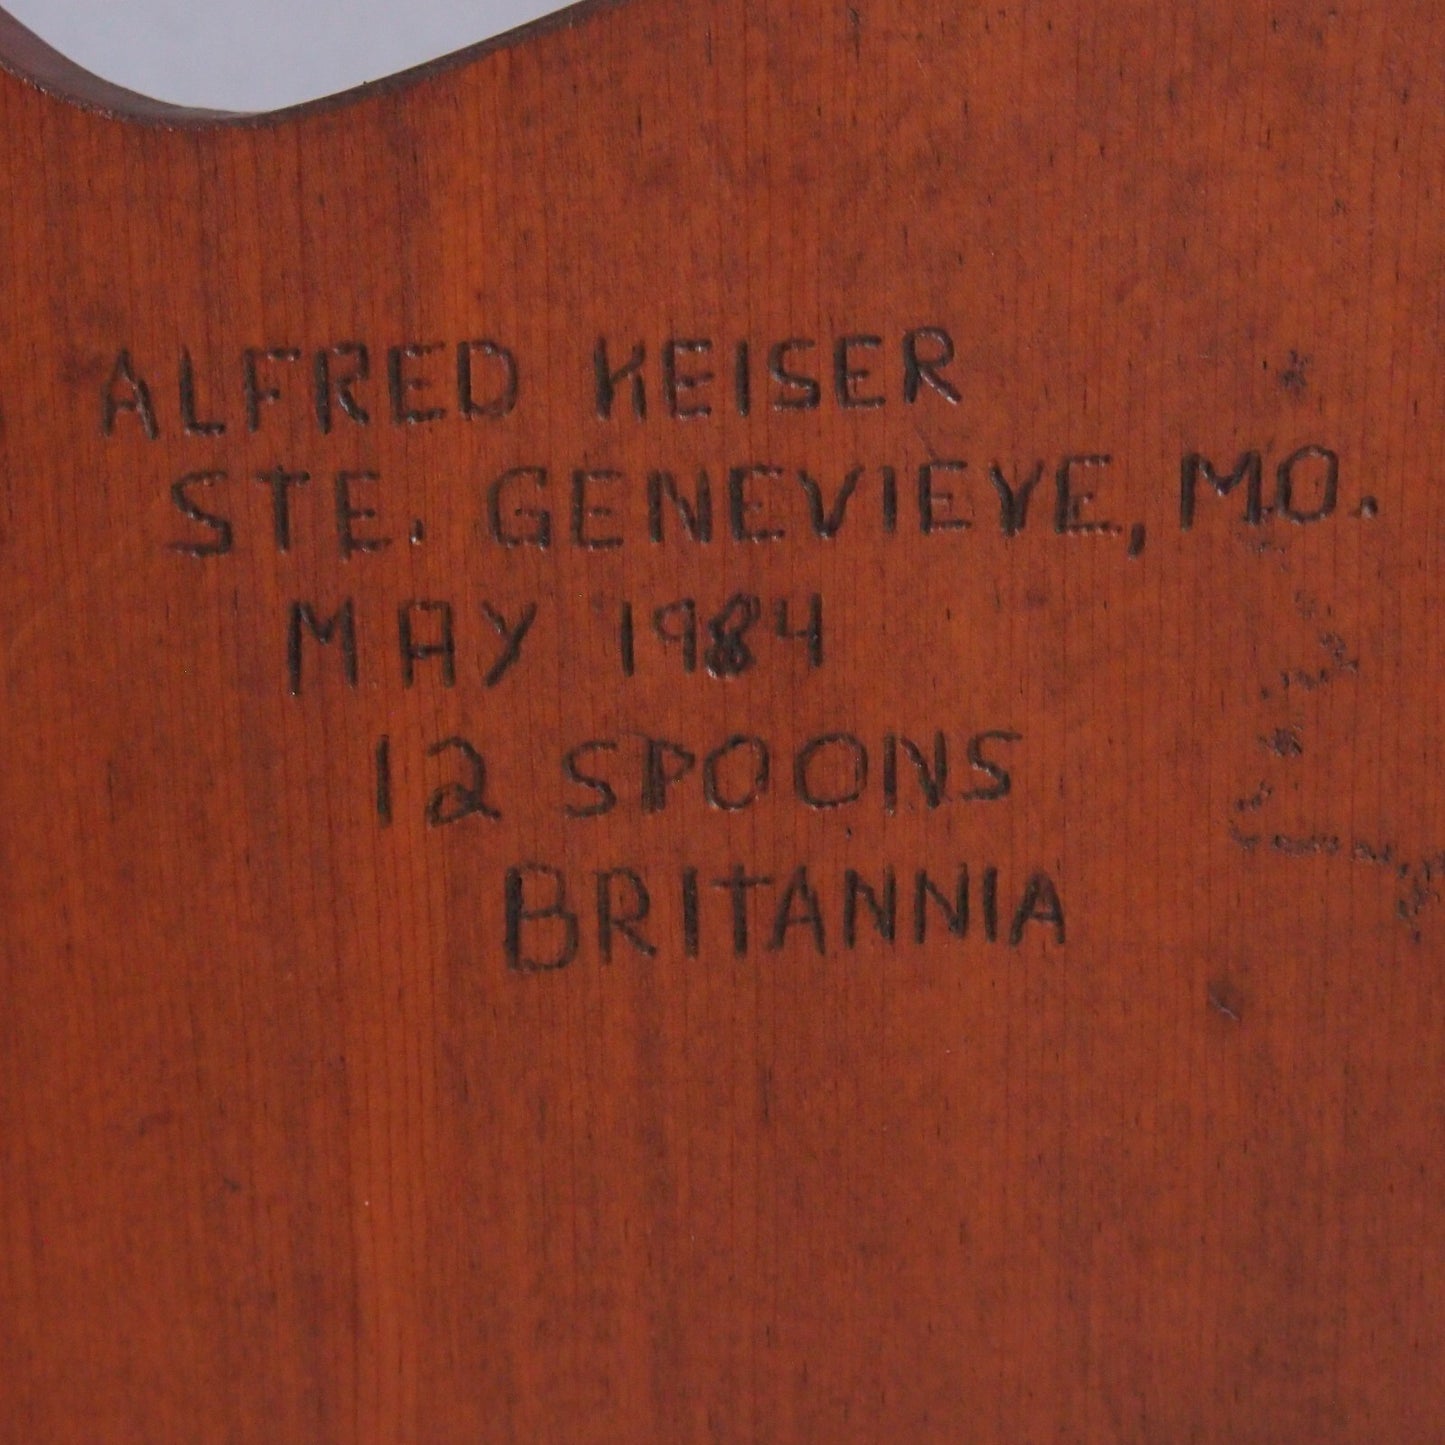 ALFRED KEISER
STE. GENEVIEVE, MO.
MAY 1984
12 SPOONS
BRITANNIA